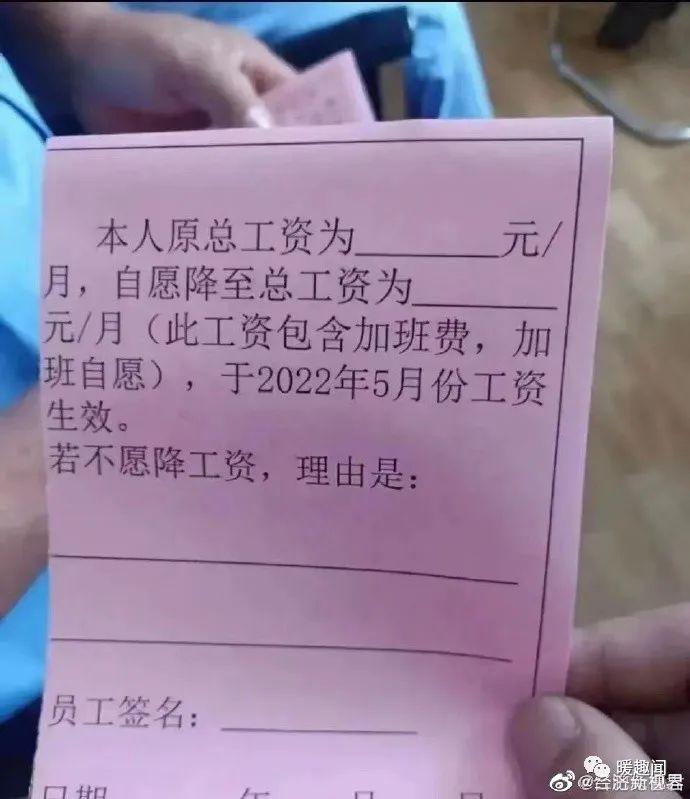 本人原总工资为_______元/
月，自愿降至总工资为_______
元/月（此工资包含加班费，加
班自愿），于2022年5月份工资
生效。
若不愿降工资，理由是：
员工签名：
日期 年 月
暖趣闻
@经济新视君